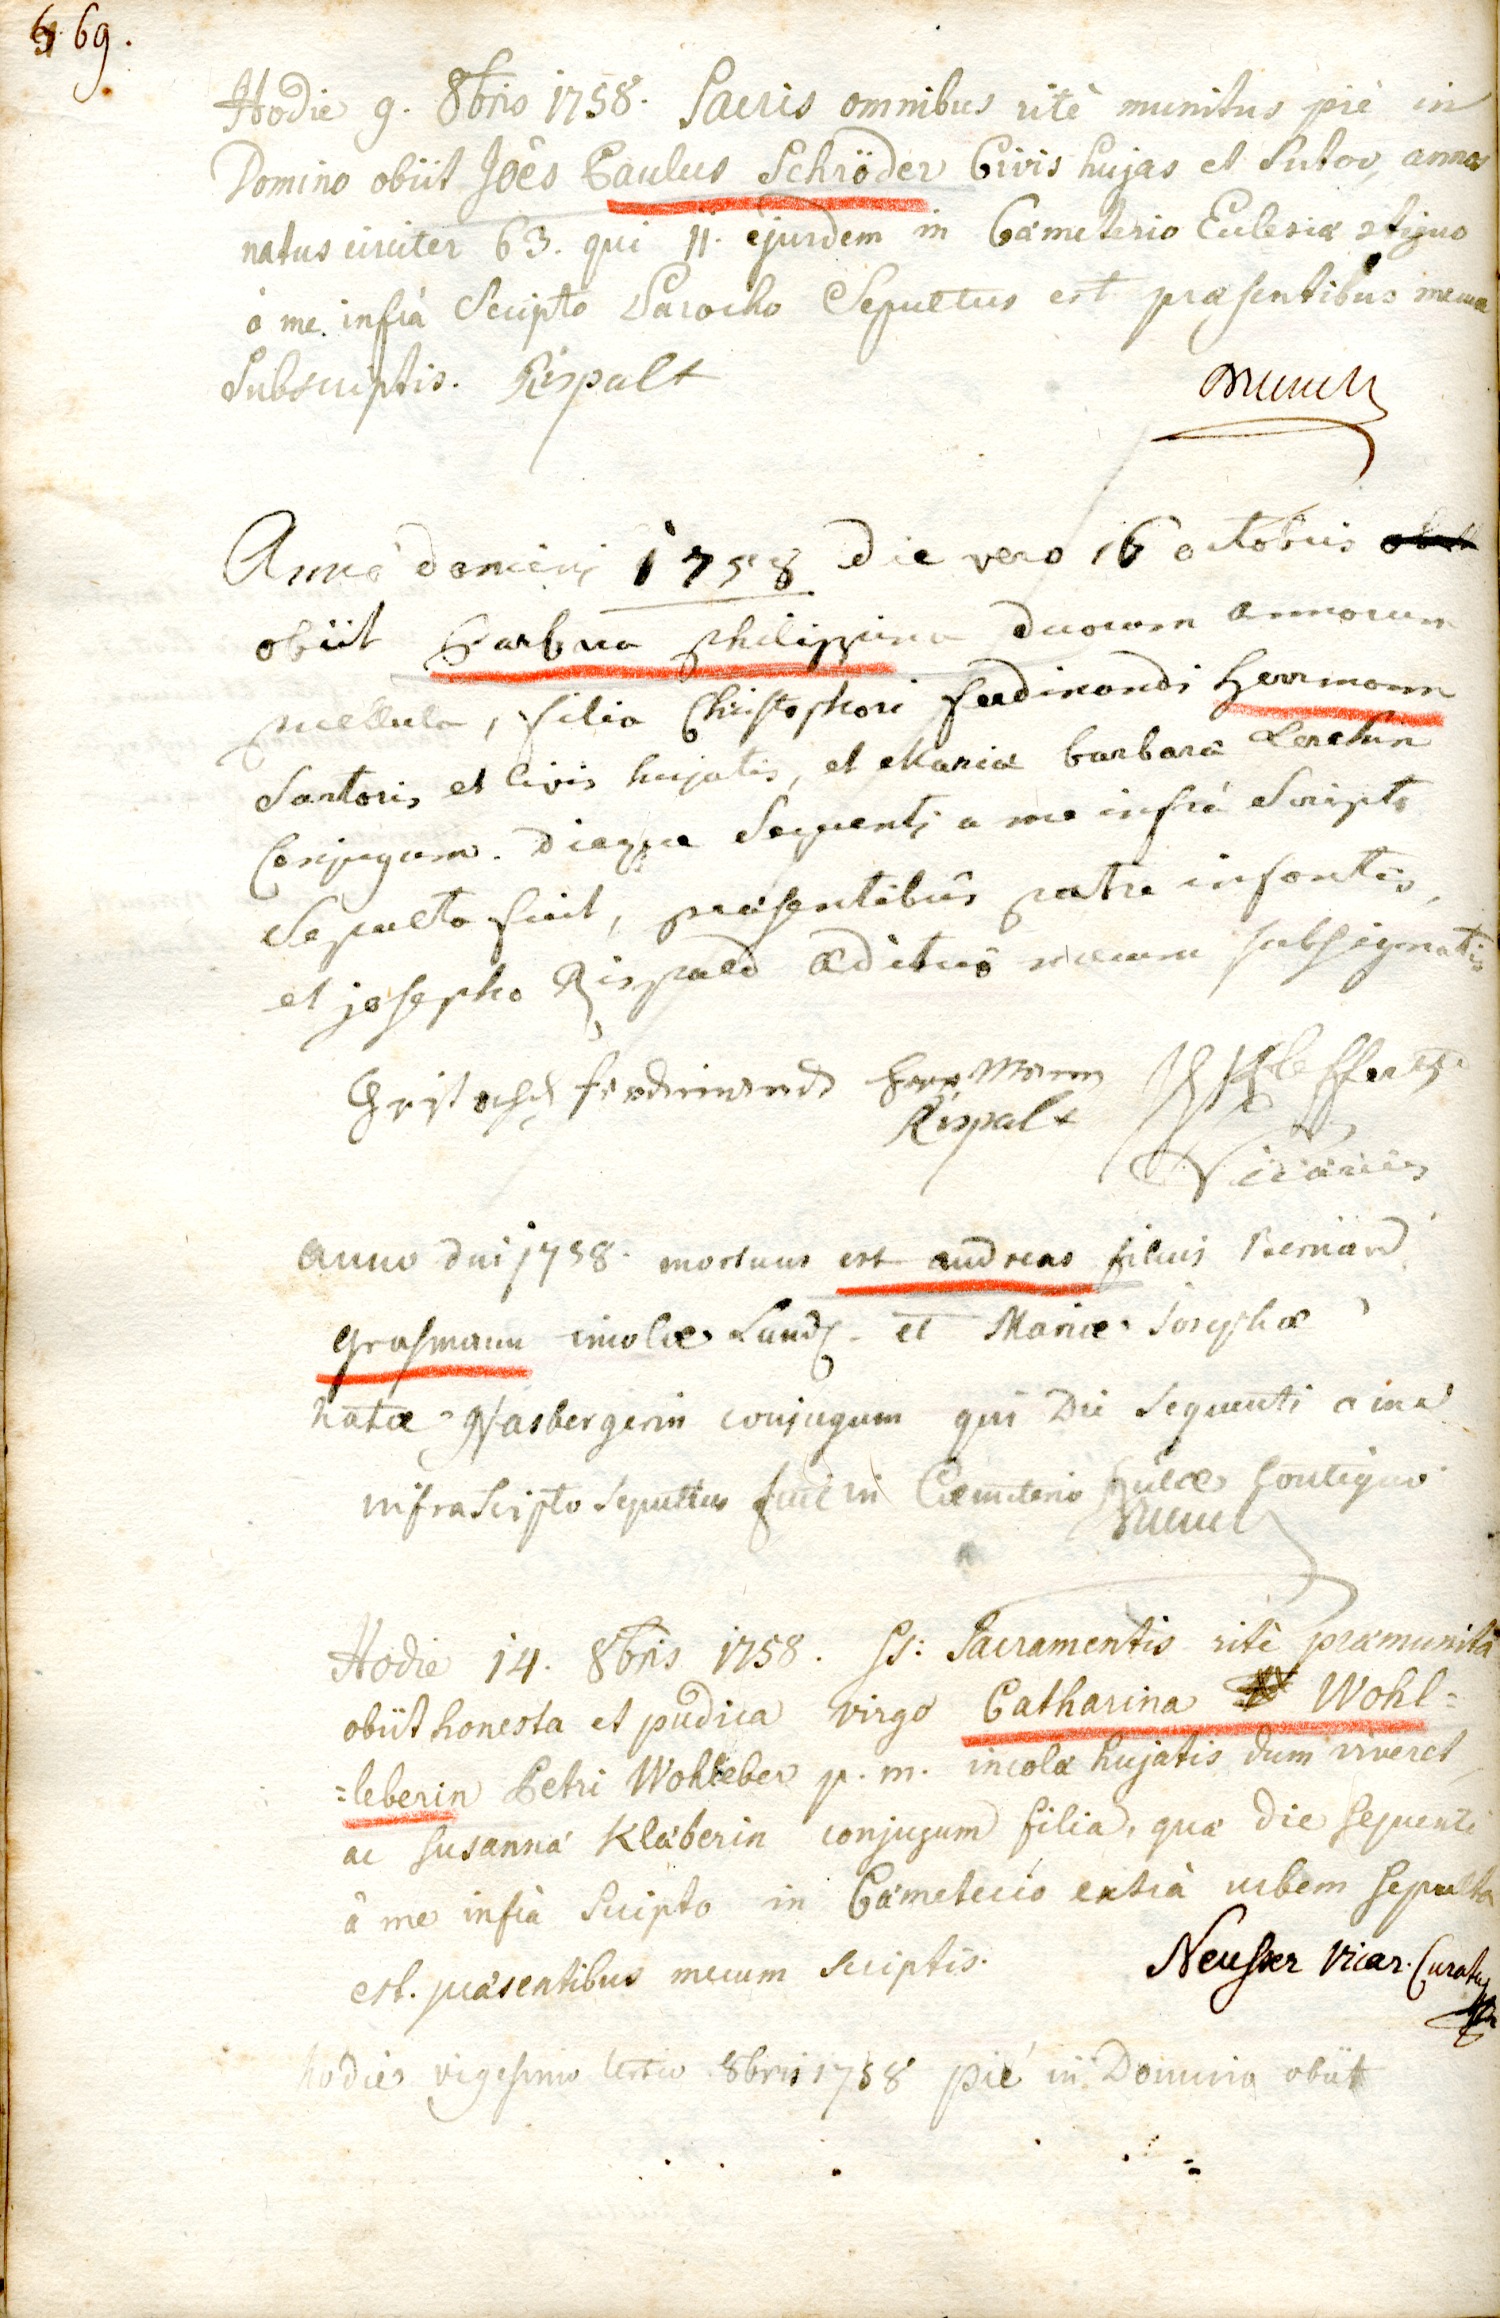 69.
Hodie 9. 8bris 1758. Sacris omnibus ritè munitus piè in
Domino obiit Joês Paulus Schröder Civis hujas et Sutor, annos
natus circiter 63. qui 11. ejusdem in Cæmeterio Ecclesiæ
à me infrà Scripto Parocho Sepultus est præsentibus mecum
Subscriptis. Rispalt
Anno domini 1758 die vero 16 octobris
obiit Barbara philippina duorum annorum
puellula, filia Christophori ferdinandi herrmann
Sartoris et Civis hujatis, et Mariæ barbaræ Lerchin
Conjugum. Dieque Sequenti a me infrà Scripto
Sepulta fuit, præsentibus patre infantis,
et josepho Rispald Ædituo mecum subsignatis
Christoph ferdinandt herrmann
Rispalt
Vicarius
Anno dni 1758. mortuus est andreas filius Bernard
Grasmann incolæ Land. et Mariæ Josephæ
natæ Wasbergerin conjugum qui Die sequenti a me
infrascripto sepultus fuit in Cæmiterio huicce Contiguo.
Hodie 14. 8bris 1758. SS: Sacramentis ritè præmunita
obiit honesta et pudica virgo Catharina Wohl=
=leberin Petri Wohlleber p. m. incolæ hujatis dum viveret
ac Susannæ Kläberin conjugum filia, quæ die sequenti
à me infrà Scripto in Cæmeterio extrà urbem sepulta
est. præsentibus mecum scriptis.
Neusser Vicar. Curatus
hodie vigesimo tertio 8bris 1758 piè in Domino obiit